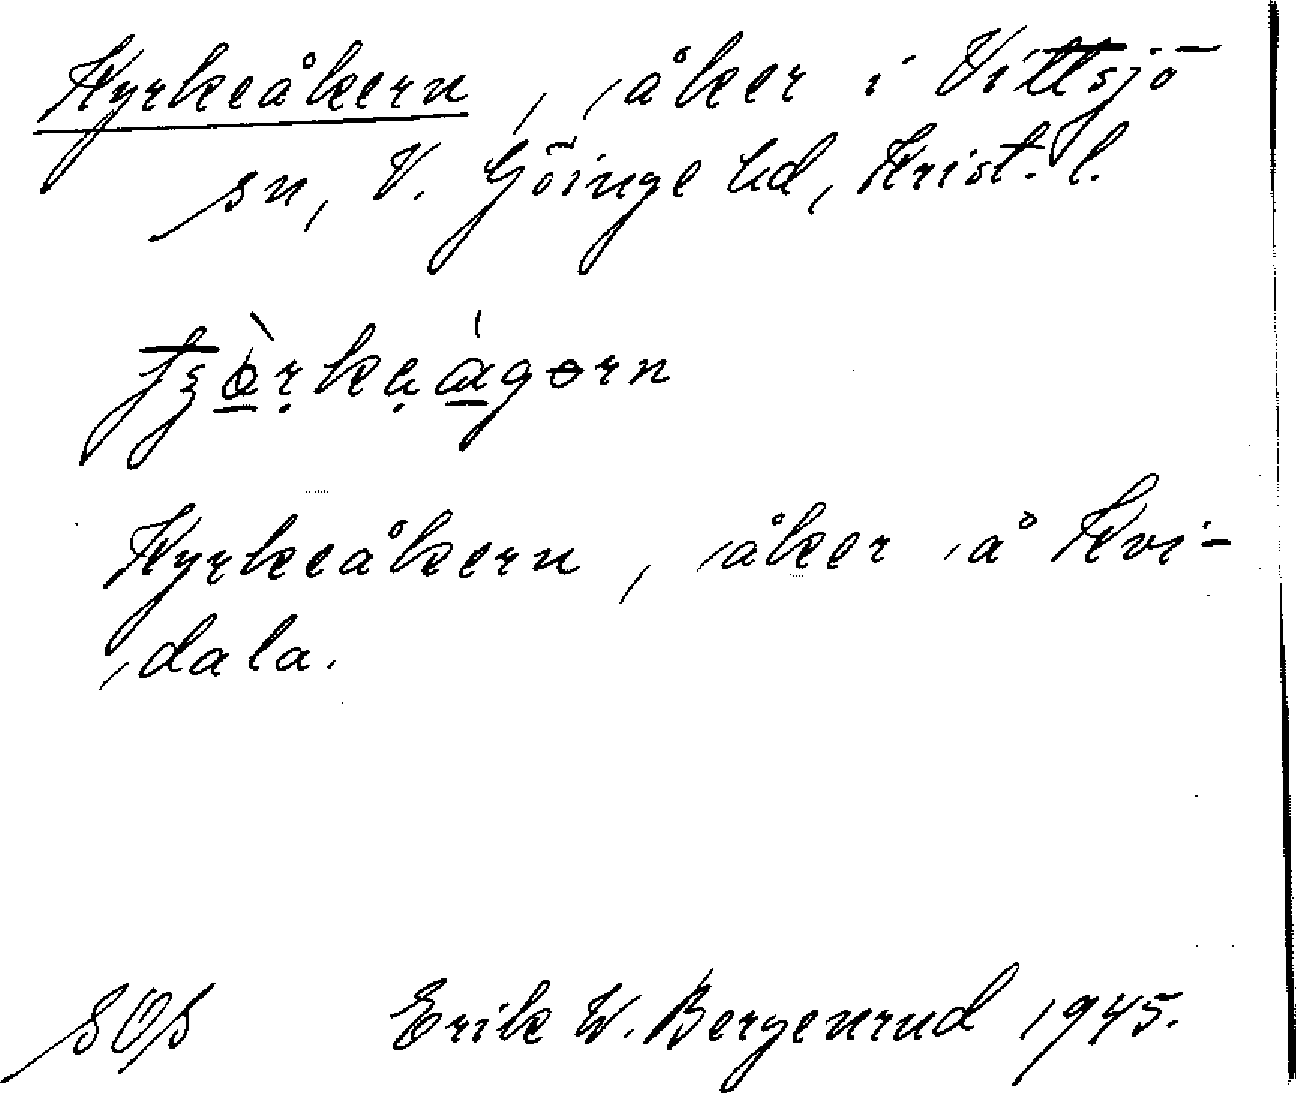 Kyrkeåkern, åker i Vittsjö
sn, V. Göinge hd, Krist. l.
Kyrkeåkern, åker å Kvi-
dala.
SOS Erik W. Bergenrud 1945.